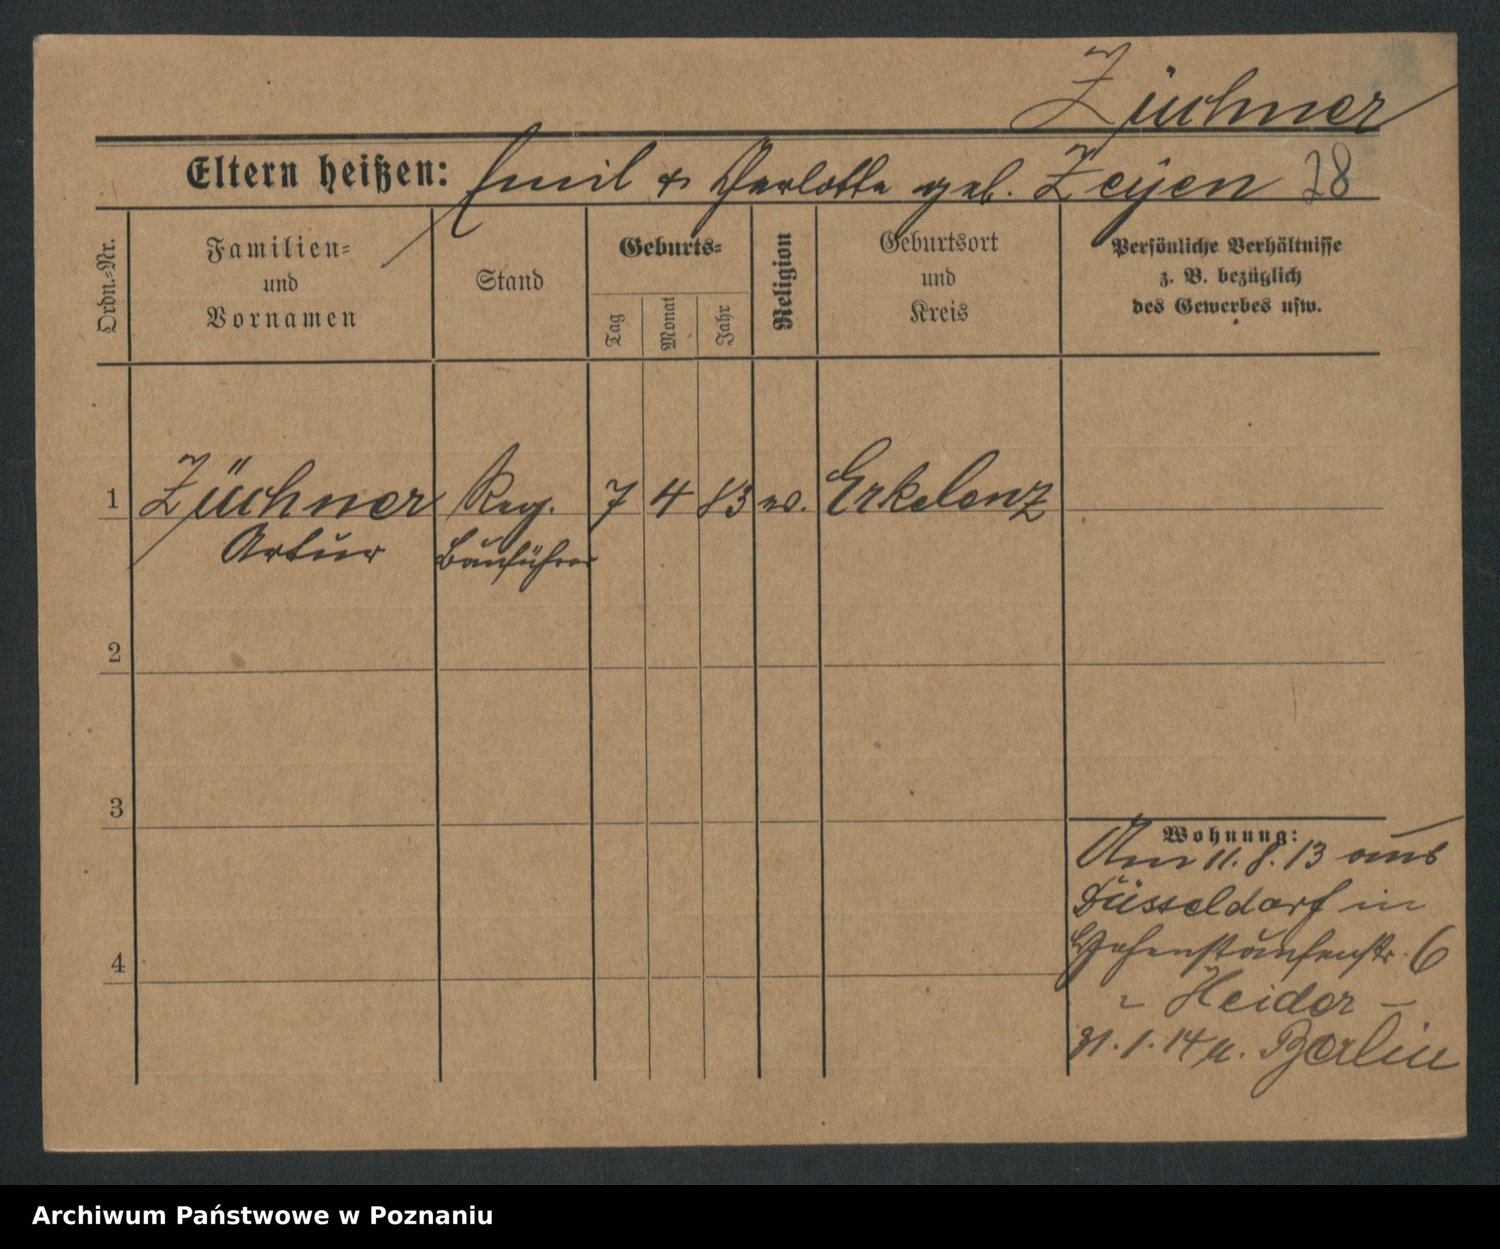 Züchner
Eltern heißen: Emil & Charlotte geb. Zeyen 28
Ordn.-Nr.
Familien-
und
Vornamen
Stand
Geburts-
Tag
Monat
Jahr
Religion
Geburtsort
und
Kreis
Persönliche Verhältnisse
z. B. bezüglich
des Gewerbes usw.
1 Züchner Reg. 7 4 83 ev. Erkelenz
Artur Bauführer
2
3
4
Wohnung:
Am 11. 8. 13 aus
Düsseldorf in
Hohenstaufenstr. 6
- Heider -
31. 1. 14 n. Berlin
Archiwum Państwowe w Poznaniu